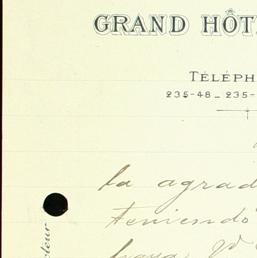 GRAND HÔT
TÉLÉPH
235-48 - 235-
la agrad
Teniendo
haya, qº
cteur